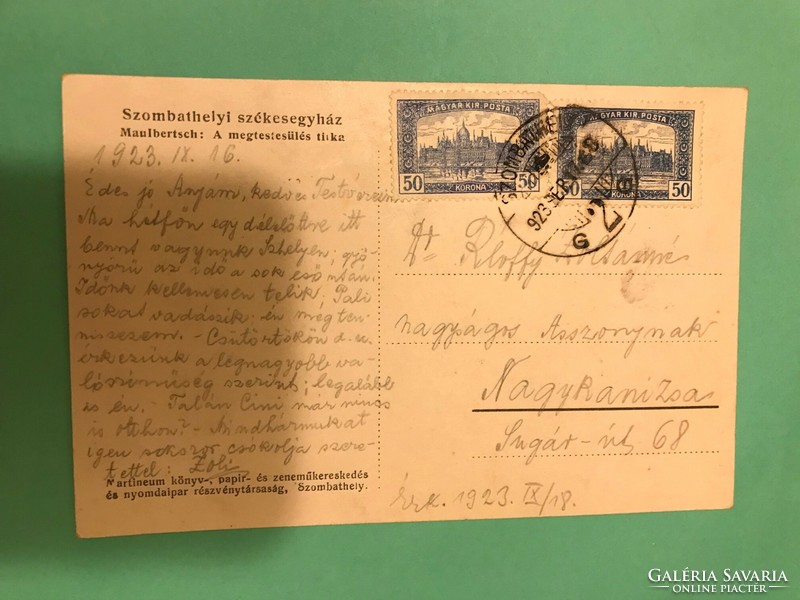 Szombathelyi székesegyház
Maulbertsch: A megtestesülés titka
1923. IX. 16.
Édes jó Anyám, kedves Testvéreim
Ma hétfőn egy délelőttre itt
bennt vagyunk Szhelyen; gyö-
nyörű az idő a sok eső után.
Időnk kellemesen telik, Pali
sokat vadászik, én meg ten-
niszezem. - Csütörtökön d. u.
érkezünk a legnagyobb va-
lószínűség szerint; legalább
is én. - Talán Cini már nincs
is otthon? - Mindhármukat
igen sokszor csókolja szere-
tettel: Zoli
Martineum könyv-, papir- és zeneműkereskedés
és nyomdaipar részvénytársaság, Szombathely.
MAGYAR KIR. POSTA
50 KORONA 50
MAGYAR KIR. POSTA
50 KORONA 50
SZOMBATHELY
923 SEP
G
nagyságos Asszonynak
Nagykanizsa
Sugár-út 68
Érk. 1923. IX/18.
GALÉRIA SAVARIA
ONLINE PIACTÉR